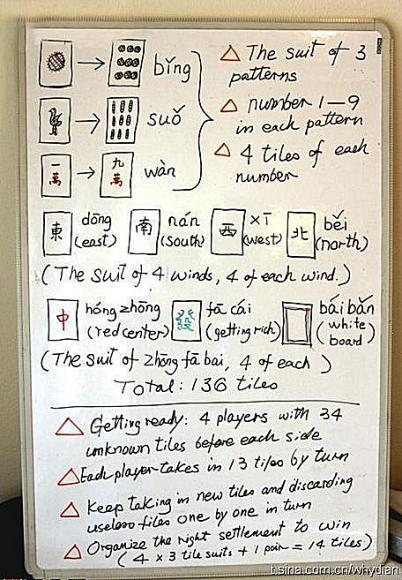 bǐng
△ The suit of 3
patterns
suǒ
△ number 1-9
in each pattern
一萬 → 九萬 wàn
△ 4 tiles of each
number
東 dōng (east) 南 nán (south) 西 xī (west) 北 běi (north)
(The suit of 4 winds, 4 of each wind.)
中 hóng zhōng (red center) 發 fā cái (getting rich) bái bǎn (white board)
(The suit of zhōng fā bái, 4 of each)
Total: 136 tiles
△ Getting ready: 4 players with 34
unknown tiles before each side
△ Each player takes in 13 tiles by turn
△ Keep taking in new tiles and discarding
useless tiles one by one in turn
△ Organize the right settlement to win
(4 x 3 tile suits + 1 pair = 14 tiles)
t.sina.com.cn/whydian